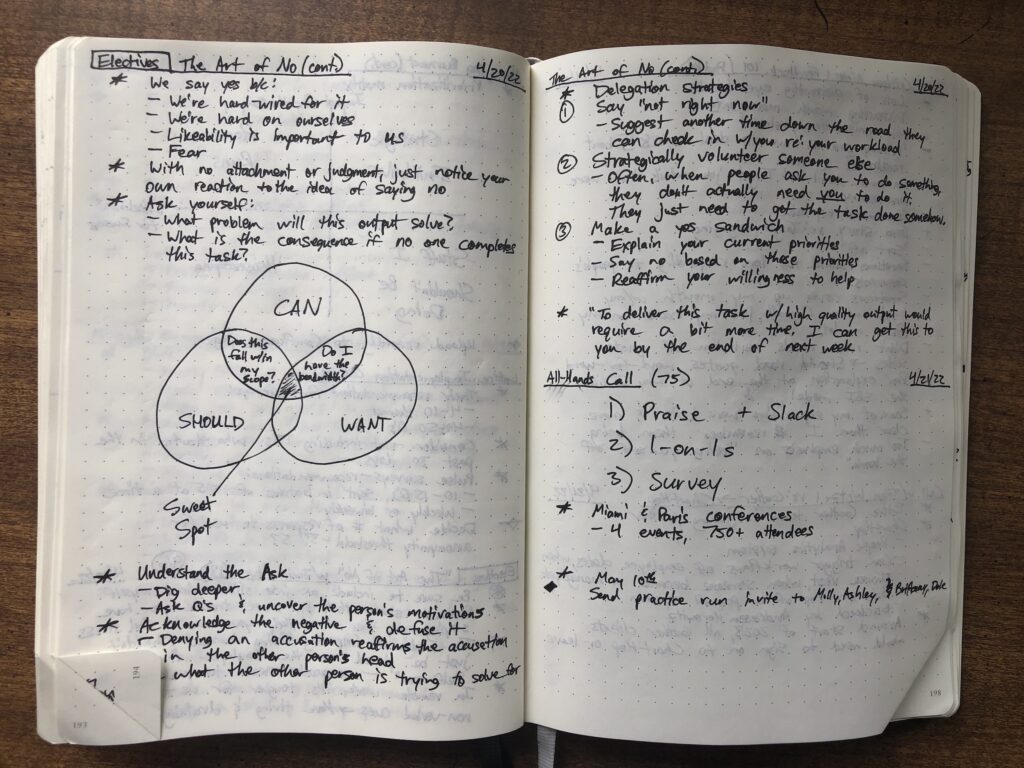 Electives The Art of No (cont.) 4/20/22
* We say yes b/c:
- We're hard-wired for it
- We're hard on ourselves
- Likeability is important to us
- Fear
* With no attachment or judgment, just notice your
own reaction to the idea of saying no
* Ask yourself:
- What problem will this output solve?
- What is the consequence if no one completes
this task?
CAN
Does this
fall w/in
my
scope?
Do I
have the
bandwidth?
SHOULD
WANT
Sweet
Spot
* Understand the Ask
- Dig deeper
- Ask Q's & uncover the person's motivations
* Acknowledge the negative & defuse it
- Denying an accusation reaffirms the accusation
in the other person's head
- what the other person is trying to solve for
194
193
The Art of No (cont.) 4/20/22
* Delegation strategies
① Say "not right now"
- Suggest another time down the road they
can check in w/you re: your workload
② Strategically volunteer someone else
- Often, when people ask you to do something,
they don't actually need you to do it.
They just need to get the task done somehow.
③ Make a yes sandwich
- Explain your current priorities
- Say no based on these priorities
- Reaffirm your willingness to help
* "To deliver this task w/ high quality output would
require a bit more time. I can get this to
you by the end of next week
All-Hands Call (75) 4/21/22
1) Praise + Slack
2) 1-on-1s
3) Survey
* Miami & Paris conferences
- 4 events, 750+ attendees
* May 10th
◆ Send practice run invite to Molly, Ashley, & Brittany, Dale
198